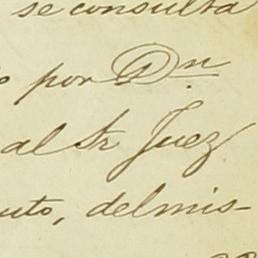 se consulta
por Dn.
al Sr Juez
uto, delmis-